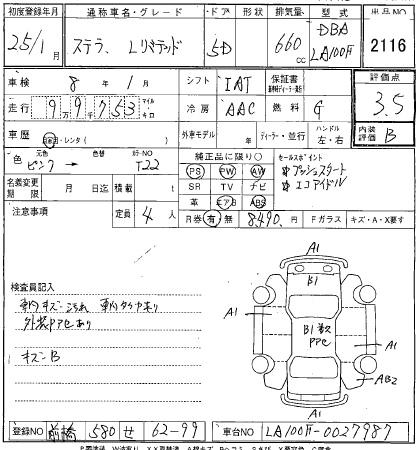 初度登録年月 通称車名・グレード ドア 形状 排気量 型式 出品NO
25/1月 ステラ Lリミテッド 5D 660cc DBA LA100F 2116
車検 8年 1月 シフト IAT 保証書 評価点
走行 99753 マイル キロ 冷房 AAC 燃料 G 3.5
車歴 自家用・レンタ( ) 外車モデル 年 ディーラー・並行 ハンドル 左・右 内装評価 B
色 元色 ピンク → 色替 カラーNO T22 純正品に限り○ セールスポイント
PS PW AW プッシュスタート
名義変更期限 月 日迄 積載 t SR TV ナビ エコアイドル
革 エアB ABS
注意事項 定員 4人 R券 有 無 8,490円 Fガラス キズ・A・X要す
検査員記入
車内キズ・汚れ 車内タバコ有り
外装PアセあI
キズ B
A1
B1
A1
B1 数ヶ Pアセ
A1
AB2
A1
登録NO 前橋 580 せ 62-99 車台NO LA100F-0027987